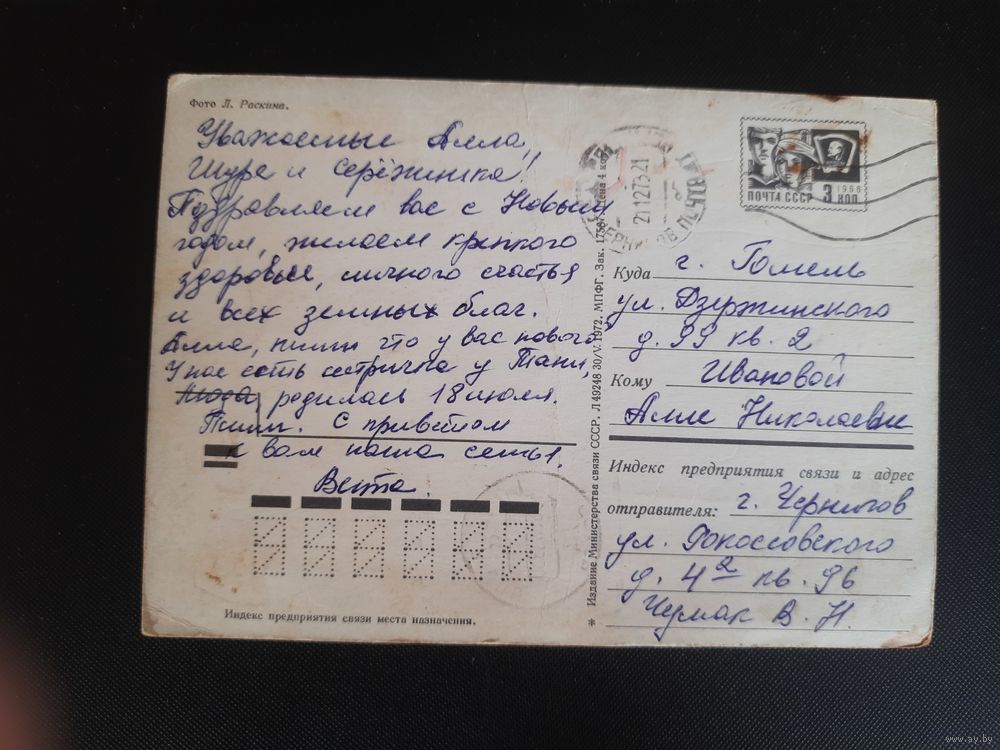 Фото Л. Раскина.
Уважаемые Алла,
Шура и Серёжинька!
Поздравляем вас с Новым
годом, желаем крепкого
здоровья, личного счастья
и всех земных благ.
Алла, пиши что у вас нового
У нас есть сестричка у Тани,
родилась 18 июля.
Пиши. С приветом
к вам наша семья.
Вета.
Индекс предприятия связи места назначения.
✻ Издание Министерства связи СССР. Л 49248 30/V. 1972. МПФГ. Зак. 17587. Цена 4 коп.
21 12 73 21
ПОЧТА СССР 3 КОП
1966
Куда г. Гомель
ул. Дзержинского
д. 99 кв. 2
Кому Ивановой
Алле Николаевне
Индекс предприятия связи и адрес
отправителя: г. Чернигов
ул. Рокоссовского
д. 4² кв. 96
Чермак В. Н.
www.ay.by